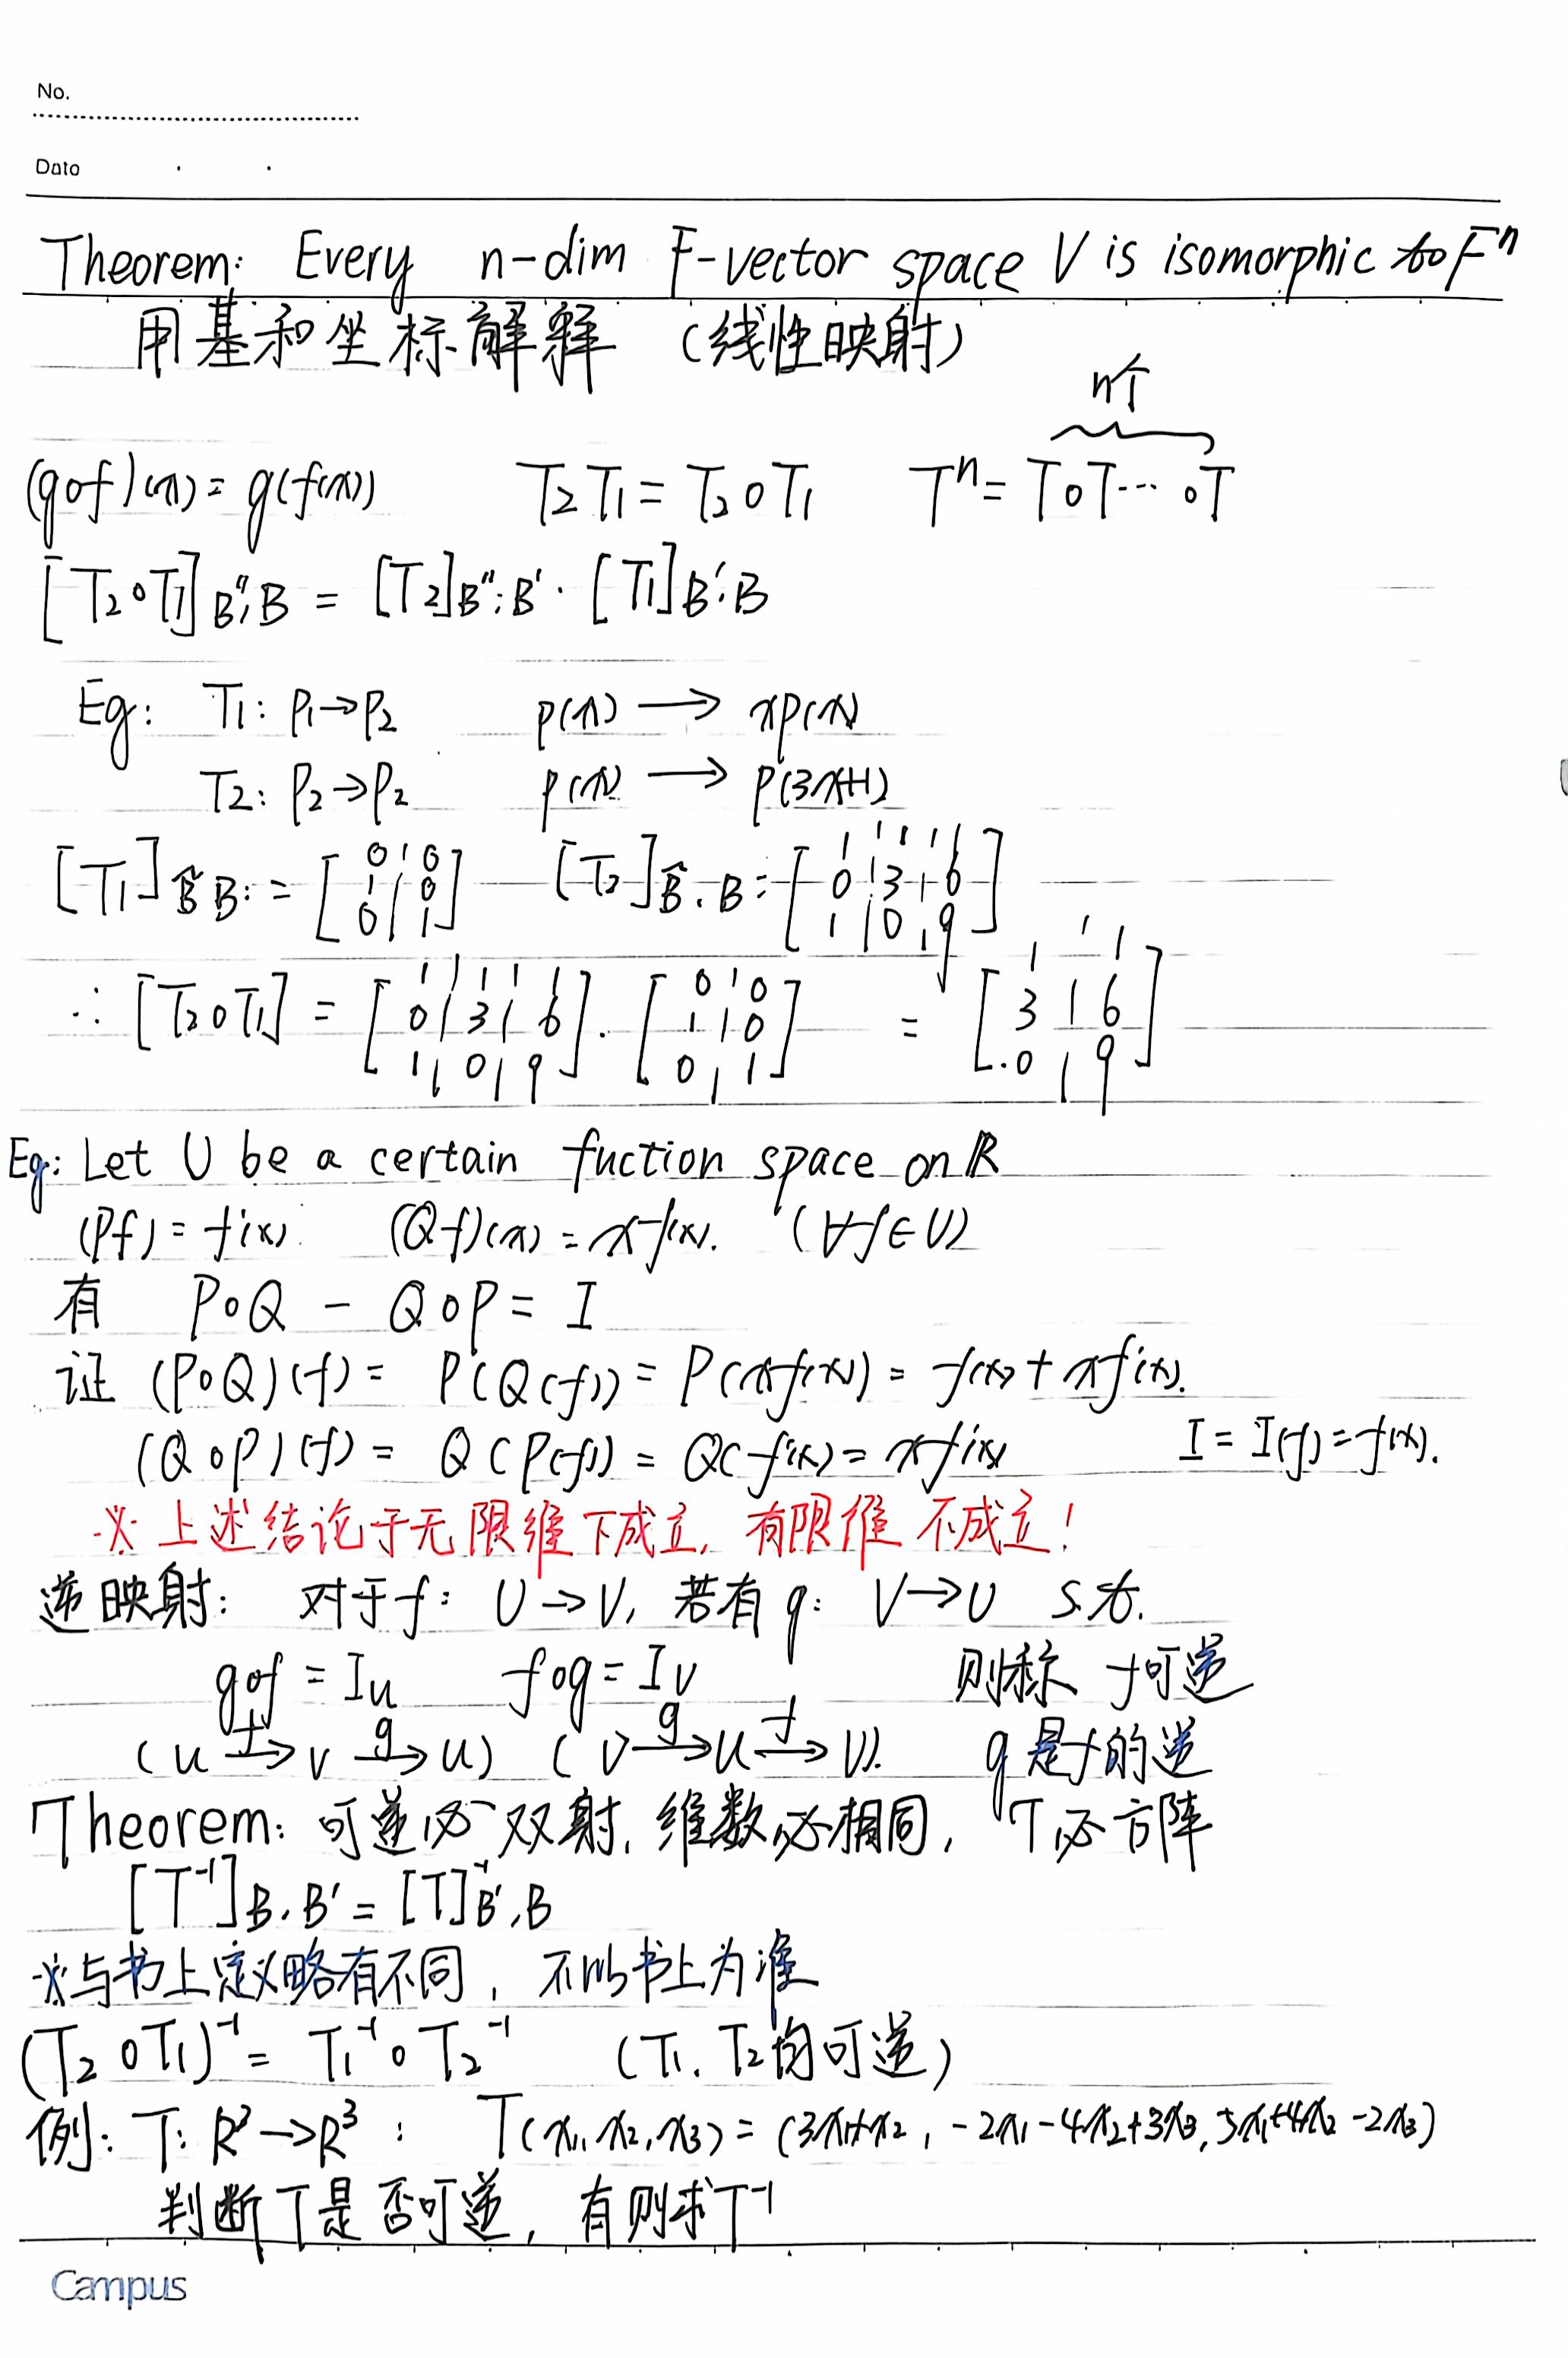 No.
Date
Theorem: Every n-dim F-vector space V is isomorphic to Fⁿ
用基和坐标解释 (线性映射)
n个
(g∘f)(x) = g(f(x)) T₂T₁ = T₂∘T₁ Tⁿ = T∘T⋯∘T
[T₂∘T₁]B'';B = [T₂]B'';B' · [T₁]B';B
Eg: T₁: P₁→P₂ p(x) → xp(x)
T₂: P₂→P₂ p(x) → p(3x+1)
[T₁] B̂ B: = [0 0; 1 0; 0 1] [T₂] B̂.B = [1 1 1; 0 3 6; 1 0 9]
∴ [T₂∘T₁] = [1 1 1; 0 3 6; 1 0 9] · [0 0; 1 0; 0 1] = [1 1; 3 6; 0 9]
Eg: Let U be a certain fuction space on ℝ
(Pf) = f'(x) (Qf)(x) = xf(x). (∀f∈U)
有 P∘Q − Q∘P = I
证 (P∘Q)(f) = P(Q(f)) = P(xf(x)) = f(x) + xf'(x).
(Q∘P)(f) = Q(P(f)) = Q(f'(x)) = xf'(x) I = I(f) = f(x).
※ 上述结论于无限维下成立, 有限维不成立!
逆映射: 对于f: U→V, 若有g: V→U s.t.
g∘f = Iu f∘g = Iv 则称 f可逆
(u →f v →g u) (v →g u →f v). g是f的逆
Theorem: 可逆必双射, 维数必相同, T必方阵
[T⁻¹]B,B' = [T]⁻¹B',B
※与书上定义略有不同, 不以书上为准
(T₂∘T₁)⁻¹ = T₁⁻¹∘T₂⁻¹ (T₁, T₂均可逆)
例: T: R³→R³ : T(x₁,x₂,x₃) = (3x₁+x₂, −2x₁−4x₂+3x₃, 5x₁+4x₂−2x₃)
判断T是否可逆, 有则求T⁻¹
Campus